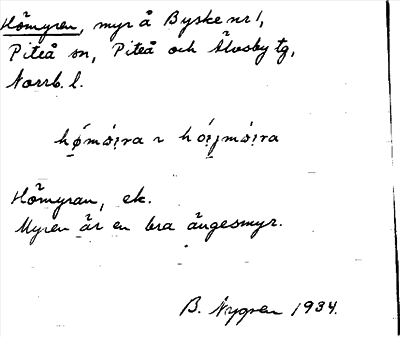 Hömyren, myr å Byske nr 1,
Piteå sn, Piteå och Älvsby tg,
Norrb. l.
Hömyran, ek.
Myren är en bra ängesmyr.
B. Nygren 1934.